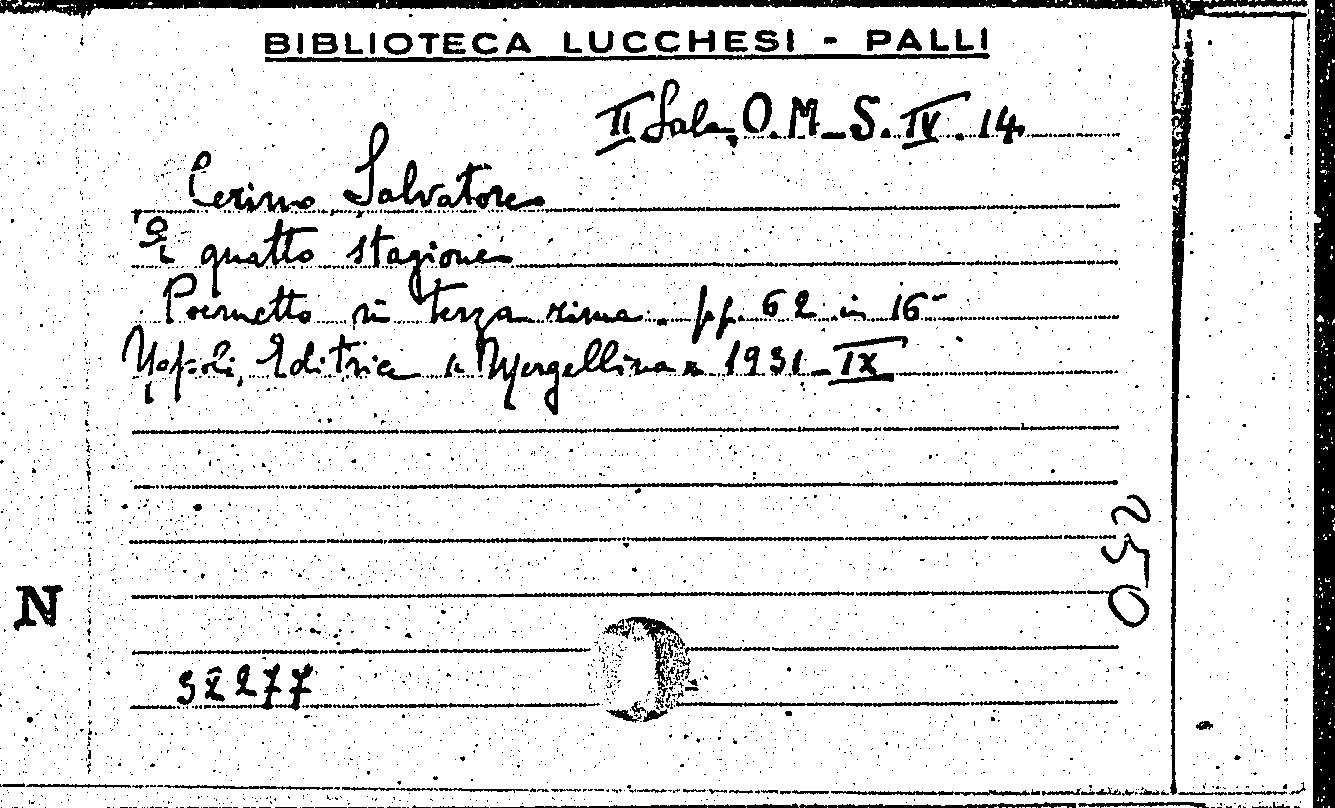 BIBLIOTECA LUCCHESI - PALLI
II Sala, O. M - S. IV. 14.
Cerino Salvatore
quatto stagione
Poemetto in terza rima. pp. 62 in 16-
Napoli, Editrice la Mergellina 1931-IX
050
N
32277